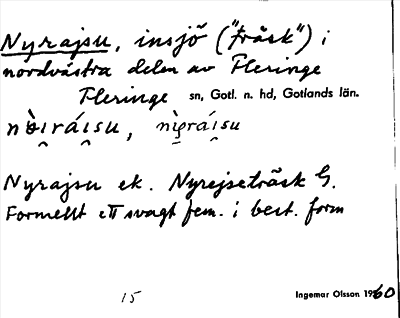 Nyrajsu, insjö ("träsk") i
nordvästra delen av Fleringe
Fleringe sn, Gotl. n. hd, Gotlands län.
Nyrajsu ek. Nyrejseträsk G.
Formellt ett svagt fem. i best. form
15 Ingemar Olsson 1960